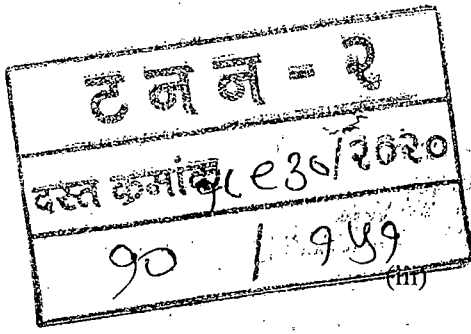 टनन - २
दस्त क्रमांक /२०२०
१० / १५१
(iii)